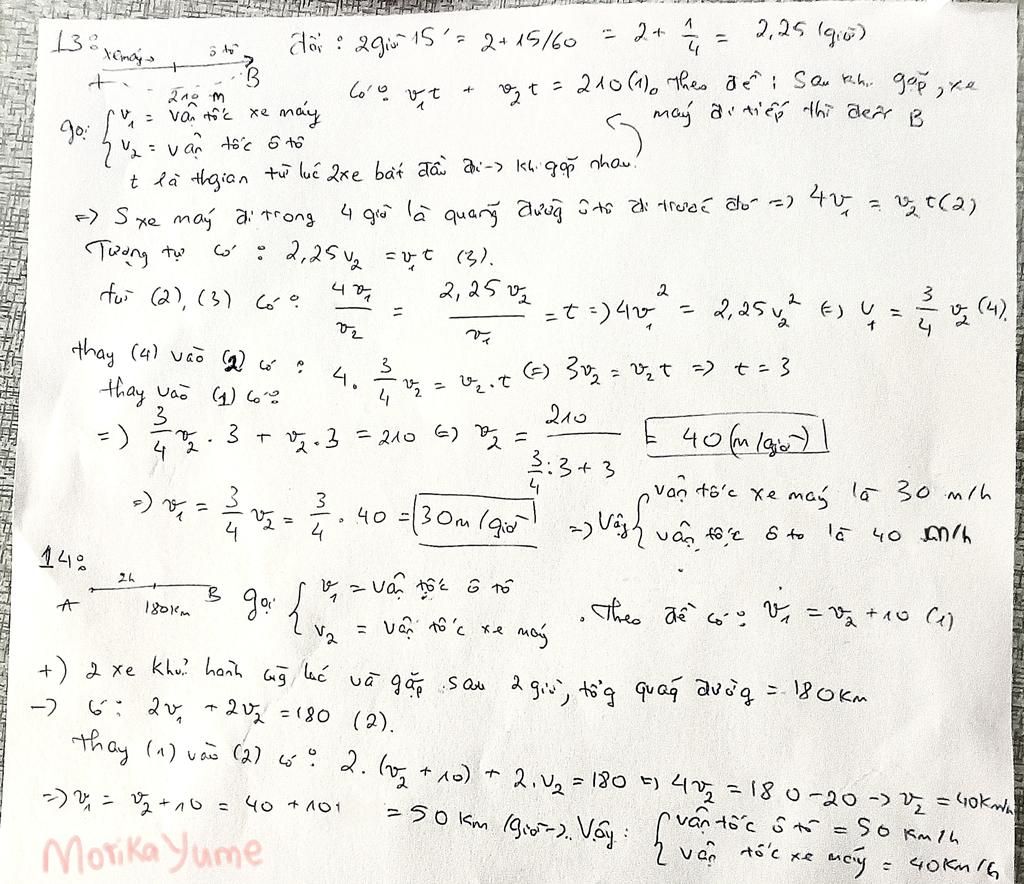 13:
xe máy→ ô tô
A B
210 m
đổi: 2giờ 15' = 2+15/60 = 2+ 1/4 = 2,25 (giờ)
Có: v₁t + v₂t = 210(1). Theo đề: Sau khi gặp, xe
máy đi tiếp thì đến B
gọi { v₁ = vận tốc xe máy
v₂ = vận tốc ô tô
t là thgian từ lúc 2xe bắt đầu đi→ khi gặp nhau.
=> S xe máy đi trong 4 giờ là quãng đường ô tô đi trước đó => 4v₁ = v₂t(2)
Tương tự có: 2,25v₂ = v₁t (3).
từ (2), (3) có: 4v₁/v₂ = 2,25v₂/v₁ = t => 4v₁² = 2,25v₂² <=> v₁ = 3/4 v₂ (4).
thay (4) vào (2) có: 4. 3/4 v₂ = v₂.t <=> 3v₂ = v₂t => t = 3
thay vào (1) có:
=> 3/4 v₂ . 3 + v₂.3 = 210 <=> v₂ = 210/(3/4:3+3) = 40(m/giờ)
=> v₁ = 3/4 v₂ = 3/4 . 40 = 30m/giờ => Vậy { vận tốc xe máy là 30 m/h
vận tốc ô tô là 40 m/h
14:
2h
A B
180km
gọi { v₁ = vận tốc ô tô
v₂ = vận tốc xe máy
. Theo đề có: v₁ = v₂ + 10 (1)
+) 2 xe khởi hành cùg lúc và gặp sau 2 giờ, tổg quãg đườg = 180km
→ có: 2v₁ + 2v₂ = 180 (2).
Thay (1) vào (2) có: 2.(v₂ + 10) + 2.v₂ = 180 => 4v₂ = 180 - 20 → v₂ = 40km/h
=> v₁ = v₂ + 10 = 40 + 10 = 50 km/giờ→. Vậy: { vận tốc ô tô = 50 km/h
vận tốc xe máy = 40km/h
Morika Yume